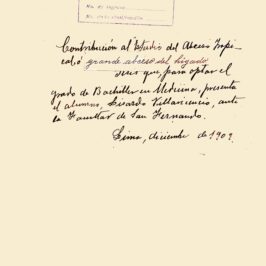 Contribución al Estudio del Absceso Tropi-
cal ó grande absceso del hígado
Tesis que para optar el
grado de Bachiller en Medicina, presenta
el alumno, Lizardo Villavicencio, ante
la Facultad de San Fernando.
Lima, diciembre de 1909.